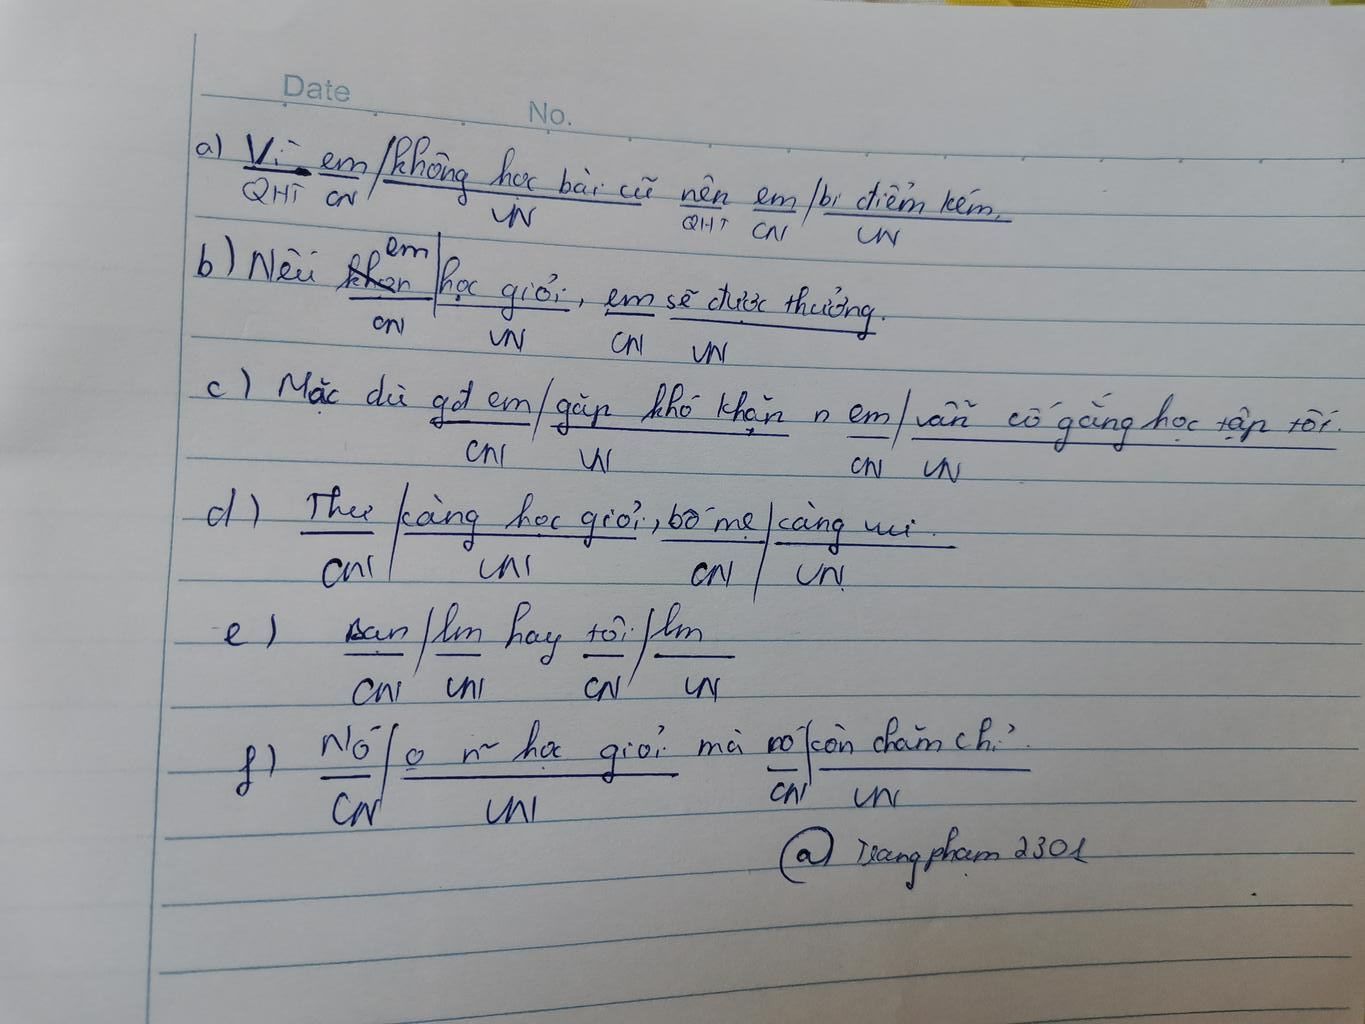 Date No.
a) Vì em/không học bài cũ nên em/bị điểm kém.
QHT CN VN QHT CN VN
b) Nếu em học giỏi, em sẽ được thưởng.
CN VN CN VN
c) Mặc dù gđ em/gặp khó khăn n em/vẫn cố gắng học tập tốt.
CN VN CN VN
d) Thu/càng học giỏi, bố mẹ/càng vui.
CN VN CN VN
e) Bạn/lm hay tôi/lm
CN VN CN VN
f) Nó/o n~ học giỏi mà nó/còn chăm chỉ.
CN VN CN VN
@ Trangpham 2301